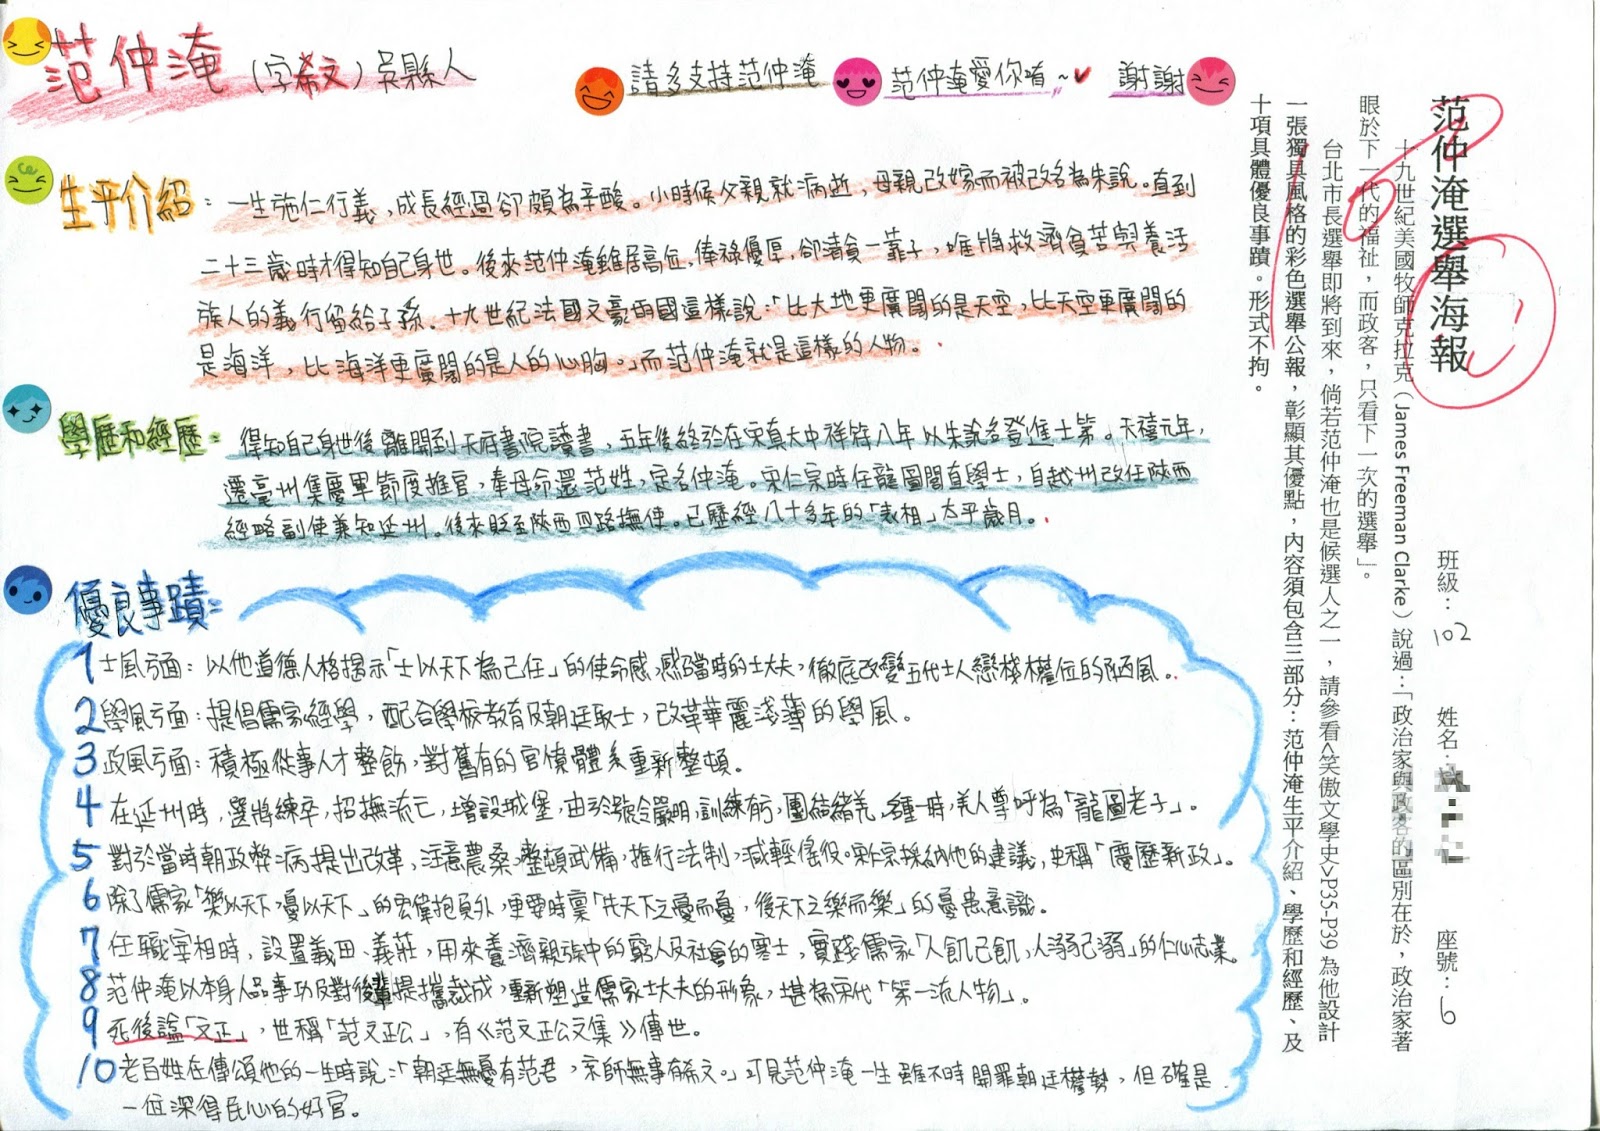 范仲淹(字希文)吳縣人
請多支持范仲淹
范仲淹愛你唷~
謝謝
生平介紹：一生施仁行義，成長經過卻頗為辛酸。小時候父親就病逝，母親改嫁而被改名為朱說。直到
二十三歲時才得知自己身世。後來范仲淹雖居高位，俸祿優厚，卻清貧一輩子，唯將救濟貧苦與養活
族人的義行留給子孫。十九世紀法國文豪雨國這樣說：「比大地更廣闊的是天空，比天空更廣闊的
是海洋，比海洋更廣闊的是人的心胸。」而范仲淹就是這樣的人物。
學歷和經歷：得知自己身世後離開到天府書院讀書，五年後終於在宋真大中祥符八年以朱說名登進士第。天禧元年，
遷亳州集慶軍節度推官，奉母命還范姓，定名仲淹。宋仁宗時任龍圖閣直學士，自越州改任陝西
經略副使兼知延州。後來貶至陝西四路撫使。已歷經八十多年的「表相」太平歲月。
優良事蹟：
1 士風方面：以他道德人格揭示「士以天下為己任」的使命感，感召當時的士大夫，徹底改變五代士人戀棧權位的陋風。
2 學風方面：提倡儒家經學，配合學校教育及朝廷取士，改革華麗淺薄的學風。
3 政風方面：積極從事人才整飭，對舊有的官僚體系重新整頓。
4 在延州時，選將練卒，招撫流亡，增設城堡，由於號令嚴明，訓練有方，團結諸羌，一時，羌人尊呼為「龍圖老子」。
5 對於當時朝政弊病提出改革，注意農桑，整頓武備，推行法制，減輕徭役。宋仁宗採納他的建議，史稱「慶歷新政」。
6 除了儒家「樂以天下，憂以天下」的宏偉抱負外，更要時稟「先天下之憂而憂，後天下之樂而樂」的憂患意識。
7 任職宰相時，設置義田、義莊，用來養濟親族中的窮人及社會的寒士，實踐儒家「人飢己飢，人溺己溺」的仁心志業。
8 范仲淹以本身人品事功及對後輩提攜裁成，重新塑造儒家士大夫的形象，堪為宋代「第一流人物」。
9 死後諡「文正」，世稱「范文正公」，有《范文正公文集》傳世。
10 老百姓在傳頌他的一生時說：「朝廷無憂有范君，京師無事有希文。」可見范仲淹一生雖不時開罪朝廷權勢，但確是
一位深得民心的好官。
范仲淹選舉海報
班級：102 姓名： 座號：6
十九世紀美國牧師克拉克（James Freeman Clarke）說過：「政治家與政客的區別在於，政治家著
眼於下一代的福祉，而政客，只看下一次的選舉」。
台北市長選舉即將到來，倘若范仲淹也是候選人之一，請參看<笑傲文學史>P35-P39 為他設計
一張獨具風格的彩色選舉公報，彰顯其優點，內容須包含三部分：范仲淹生平介紹、學歷和經歷、及
十項具體優良事蹟。形式不拘。